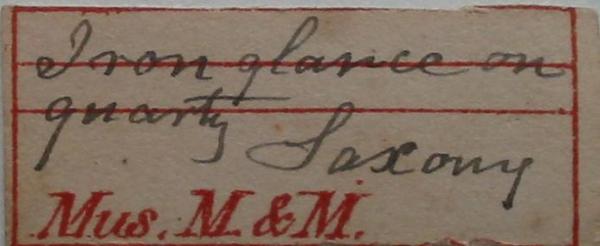 Iron glance on
quartz Saxony
Mus. M. & M.